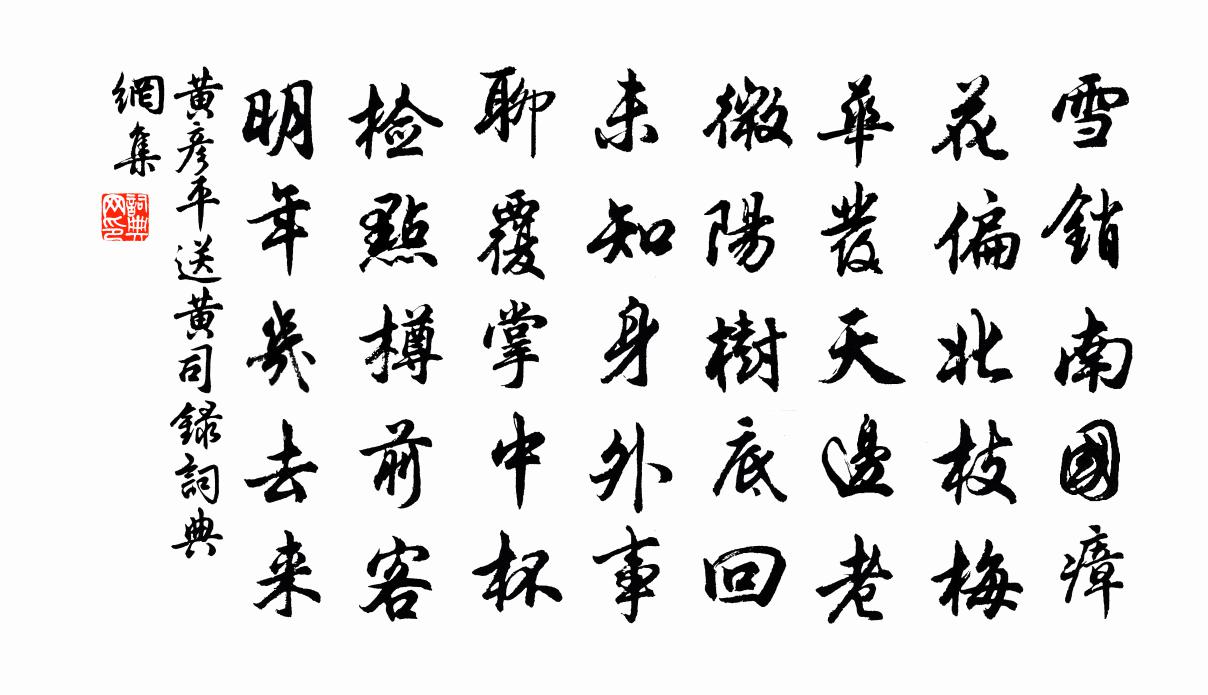 雪銷南國瘴
花偏北枝梅
華發天邊老
微陽樹底回
未知身外事
聊覆掌中杯
檢點樽前客
明年幾去来
黄彦平送黄司録詞典
網集
詞典
网印